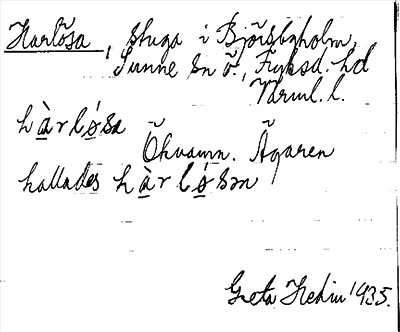 Harlösa, stuga i Björsbyholm,
Sunne sn ö., Fryksd. hd
Värml. l.
hàrlósa
Öknamn. Ägaren
kallades hàrlósən
Greta Hedin 1935.